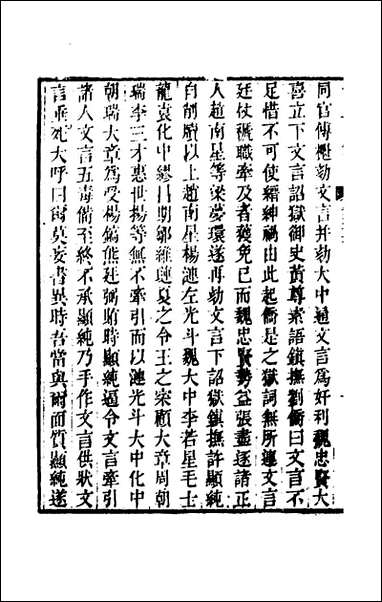 同官傅櫆劾文言并劾大中通文言為奸利魏忠賢大
喜立下文言詔獄御史黃尊素語鎮撫劉僑曰文言不
足惜不可使縉紳禍由此起僑是之獄詞無所連文言
廷杖褫職牽及者獲免已而魏忠賢勢益張盡逐諸正
人趙南星等梁夢環遂再劾文言下詔獄鎮撫許顯純
自削牘以上趙南星楊漣左光斗魏大中李若星毛士
龍袁化中繆昌期鄒維璉夏之令王之寀顧大章周朝
瑞李三才惠世揚等無不牽引而以漣光斗大中化中
朝瑞大章為受楊鎬熊廷弼賄時顯純逼令文言牽引
諸人文言五毒備至終不承顯純乃手作文言供狀文
言垂死大呼曰爾莫妄書異時吾當與爾面質顯純遂